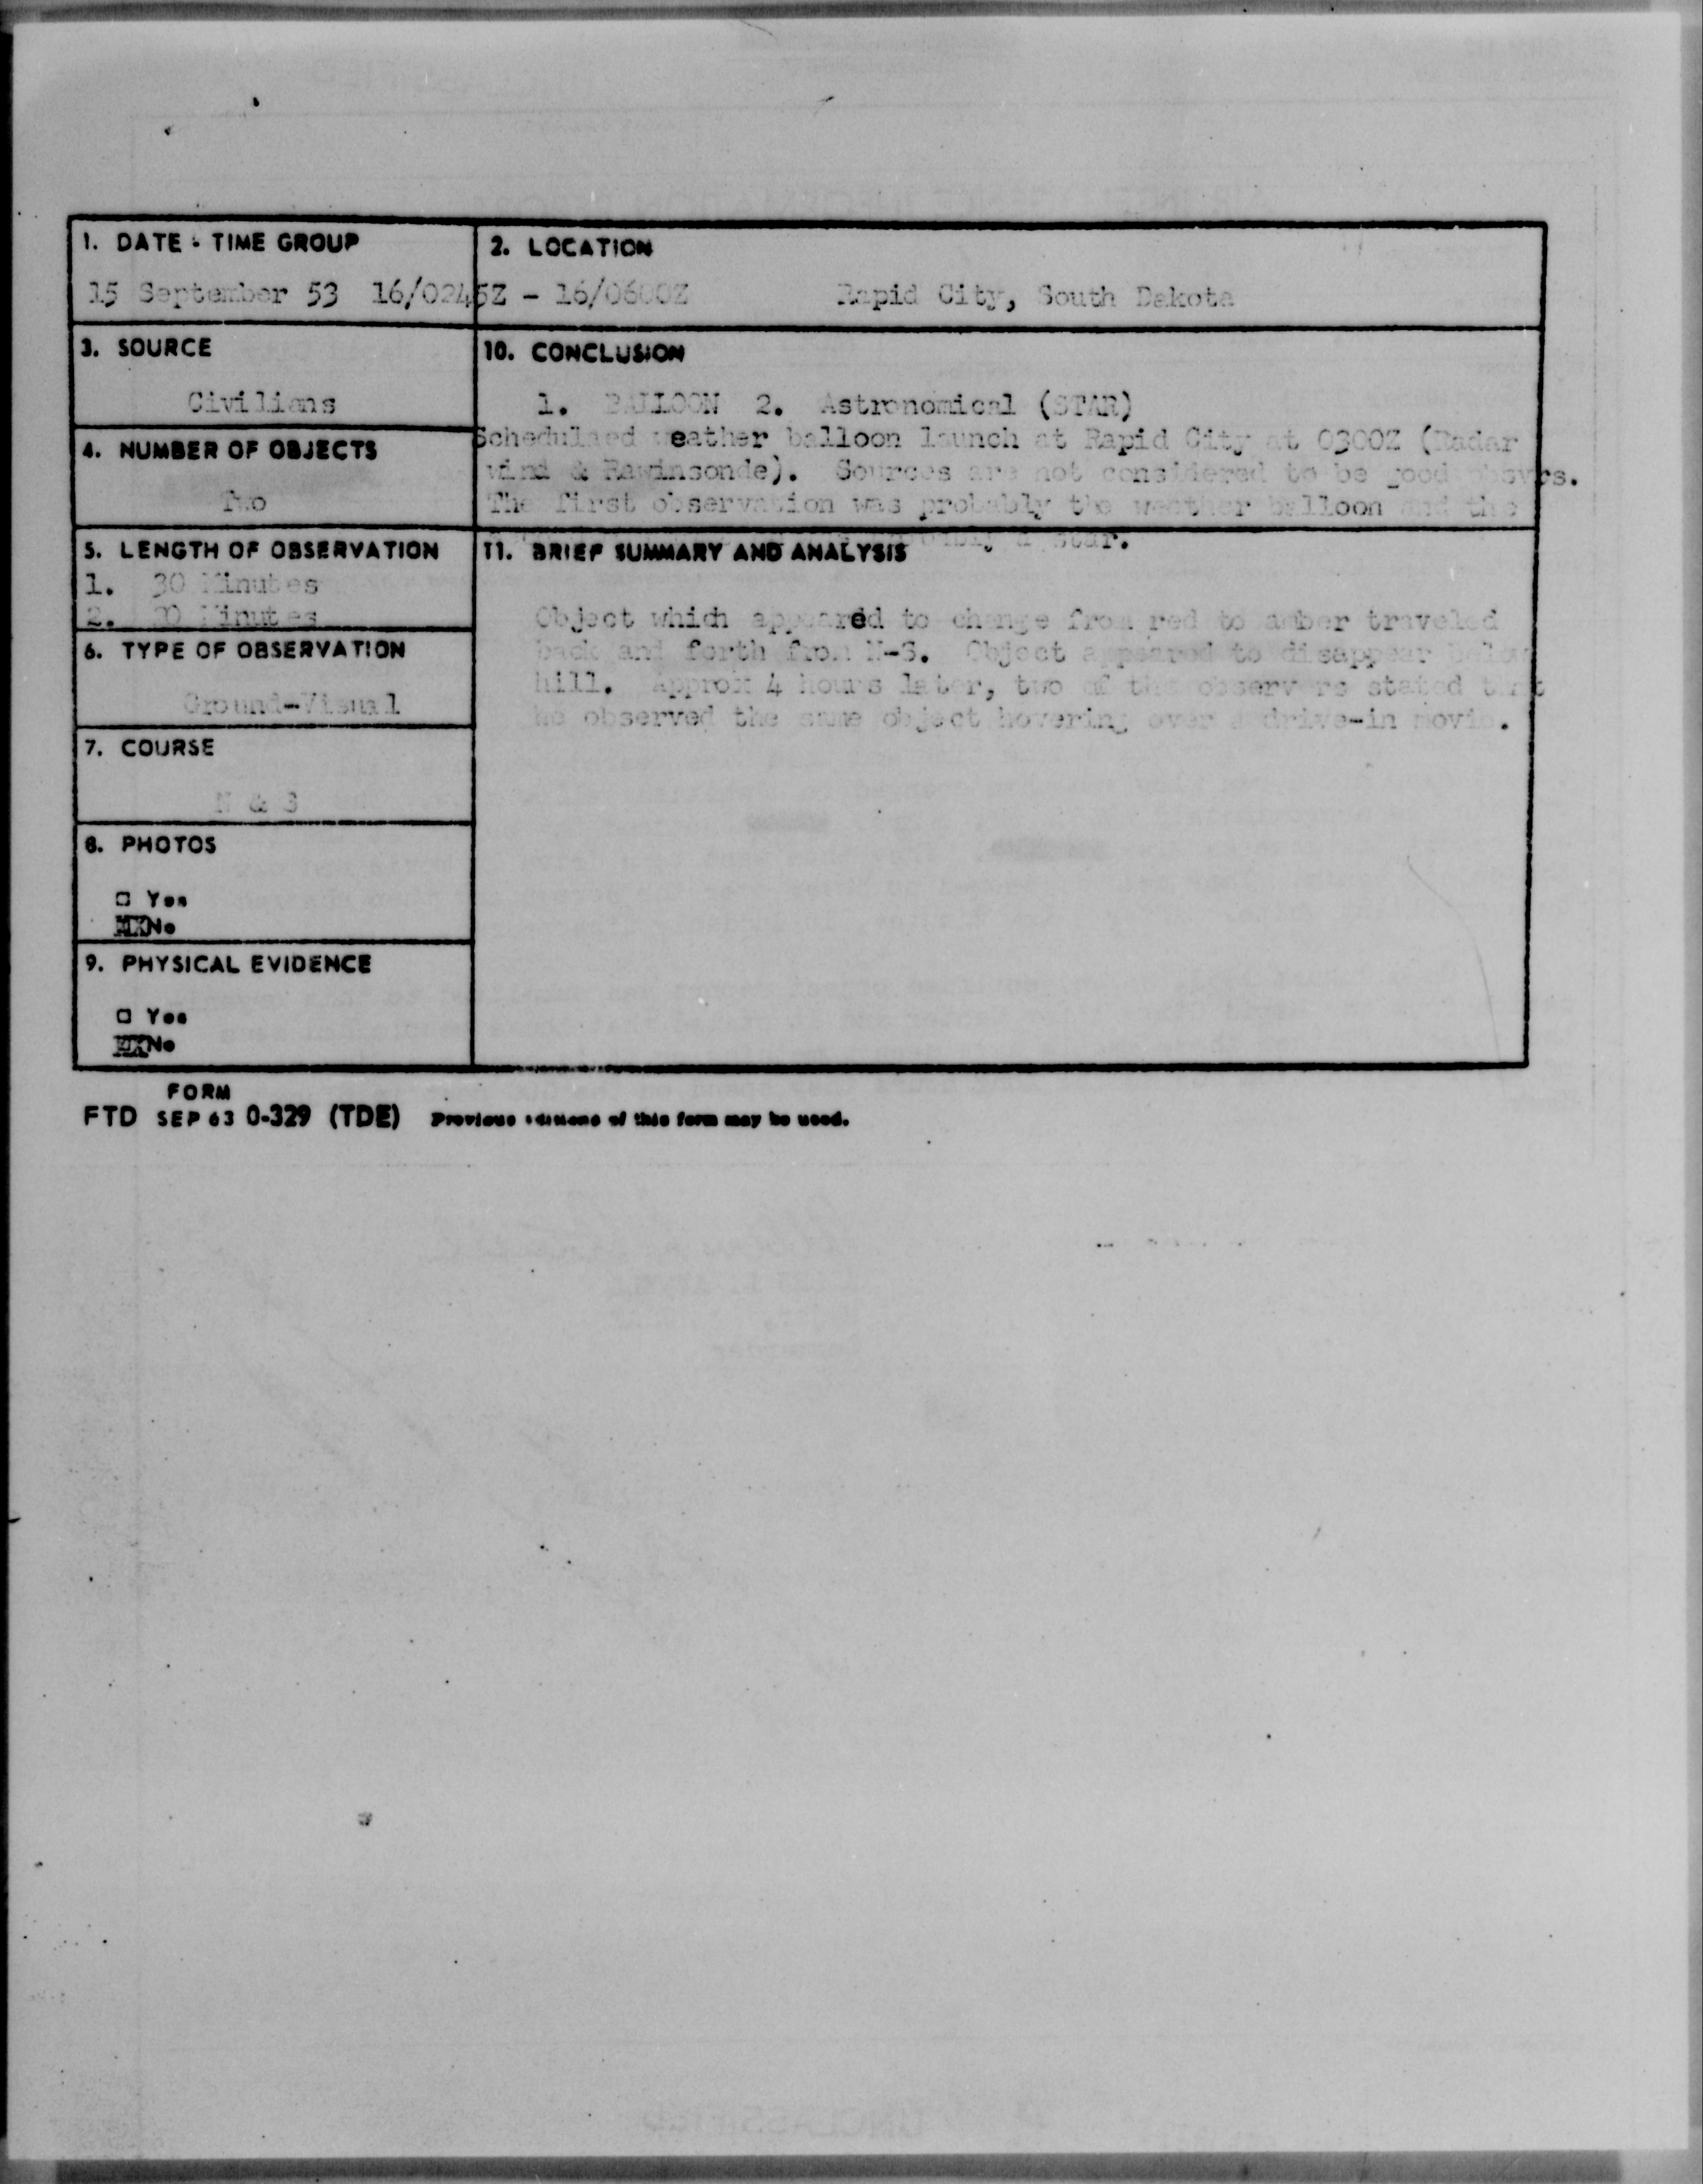 1. DATE - TIME GROUP
15 September 53 16/0245Z - 16/0600Z
2. LOCATION
Rapid City, South Dakota
3. SOURCE
Civilians
10. CONCLUSION
1. BALLOON 2. Astronomical (STAR)
Scheduled weather balloon launch at Rapid City at 0300Z (Radar
wind & Rawinsonde). Sources are not considered to be good obsvrs.
The first observation was probably the weather balloon and the
probably a star.
4. NUMBER OF OBJECTS
Two
5. LENGTH OF OBSERVATION
1. 30 Minutes
2. Minutes
11. BRIEF SUMMARY AND ANALYSIS
Object which appeared to change from red to amber traveled
back and forth from N-S. Object appeared to disappear below
hill. Approx 4 hours later, two of the observers stated that
he observed the same object hovering over a drive-in movie.
6. TYPE OF OBSERVATION
Ground-Visual
7. COURSE
N & S
8. PHOTOS
□ Yes
XX No
9. PHYSICAL EVIDENCE
□ Yes
XX No
FORM
FTD SEP 63 0-329 (TDE) Previous editions of this form may be used.
UNCLASSIFIED